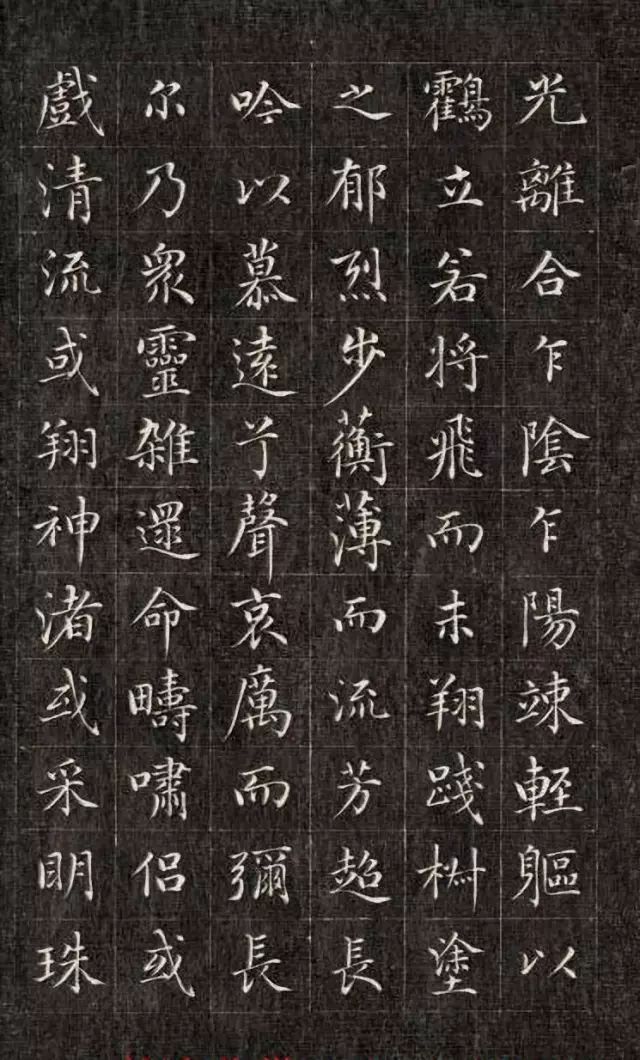 光離合乍陰乍陽竦軽軀以
鸖立若将飛而未翔踐椒塗
之郁烈步蘅薄而流芳超長
吟以慕遠兮聲哀厲而彌長
尔乃衆靈雑遝命疇嘯侣或
戲清流或翔神渚或采眀珠